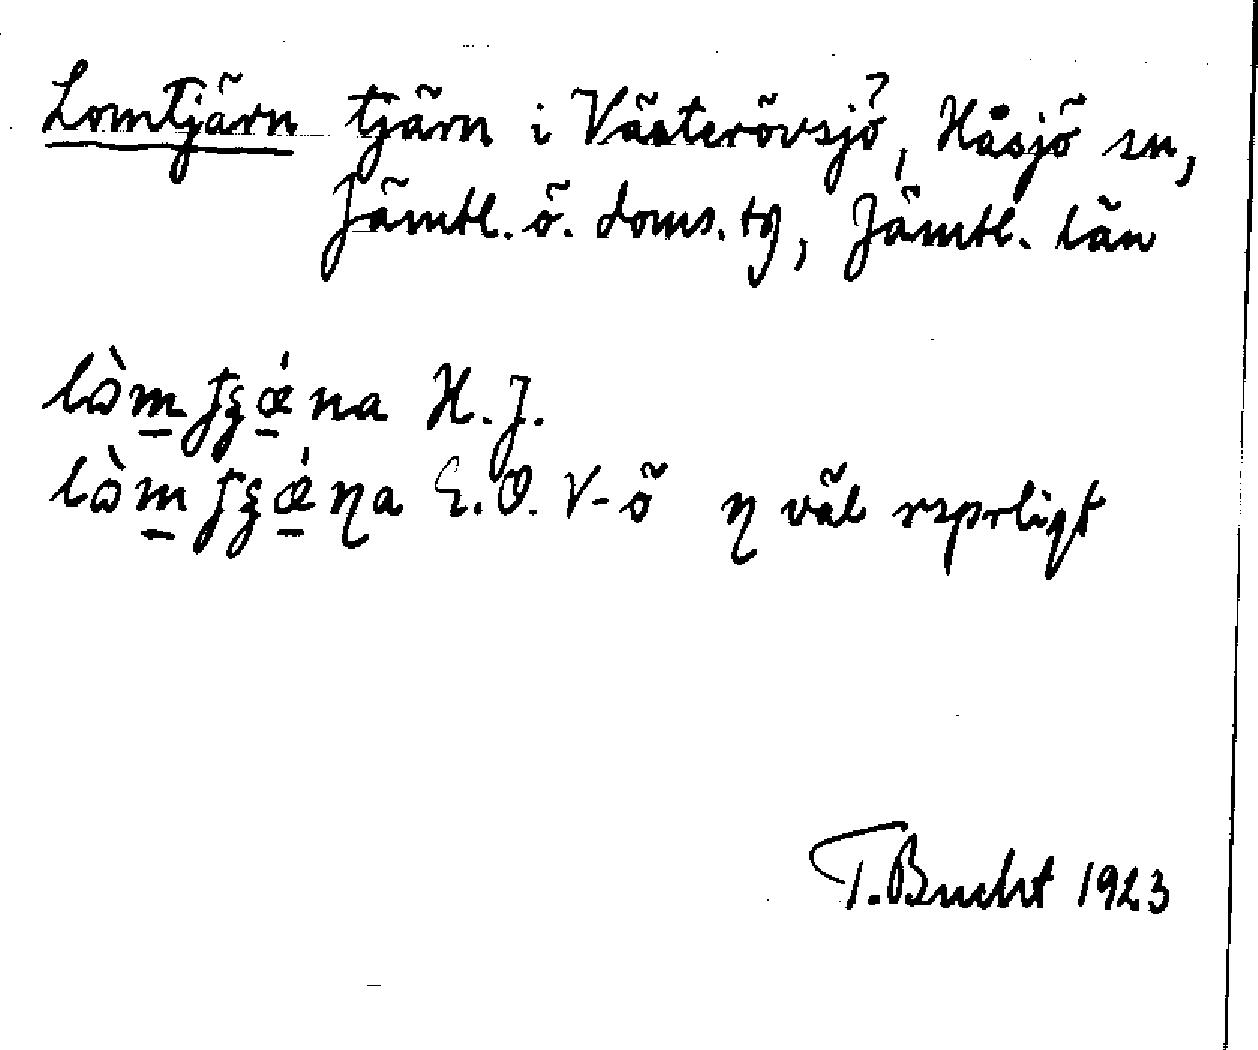 Lomtjärn tjärn i Västerövsjö, Håsjö sn,
Jämtl. ö. doms. tg, Jämtl. län
lòm̲ʃʒǽ̲na H. J.
lòm̲ʃʒǽ̲ɳa E. O. V-ö ɳ väl rsprligt
T. Bucht 1923